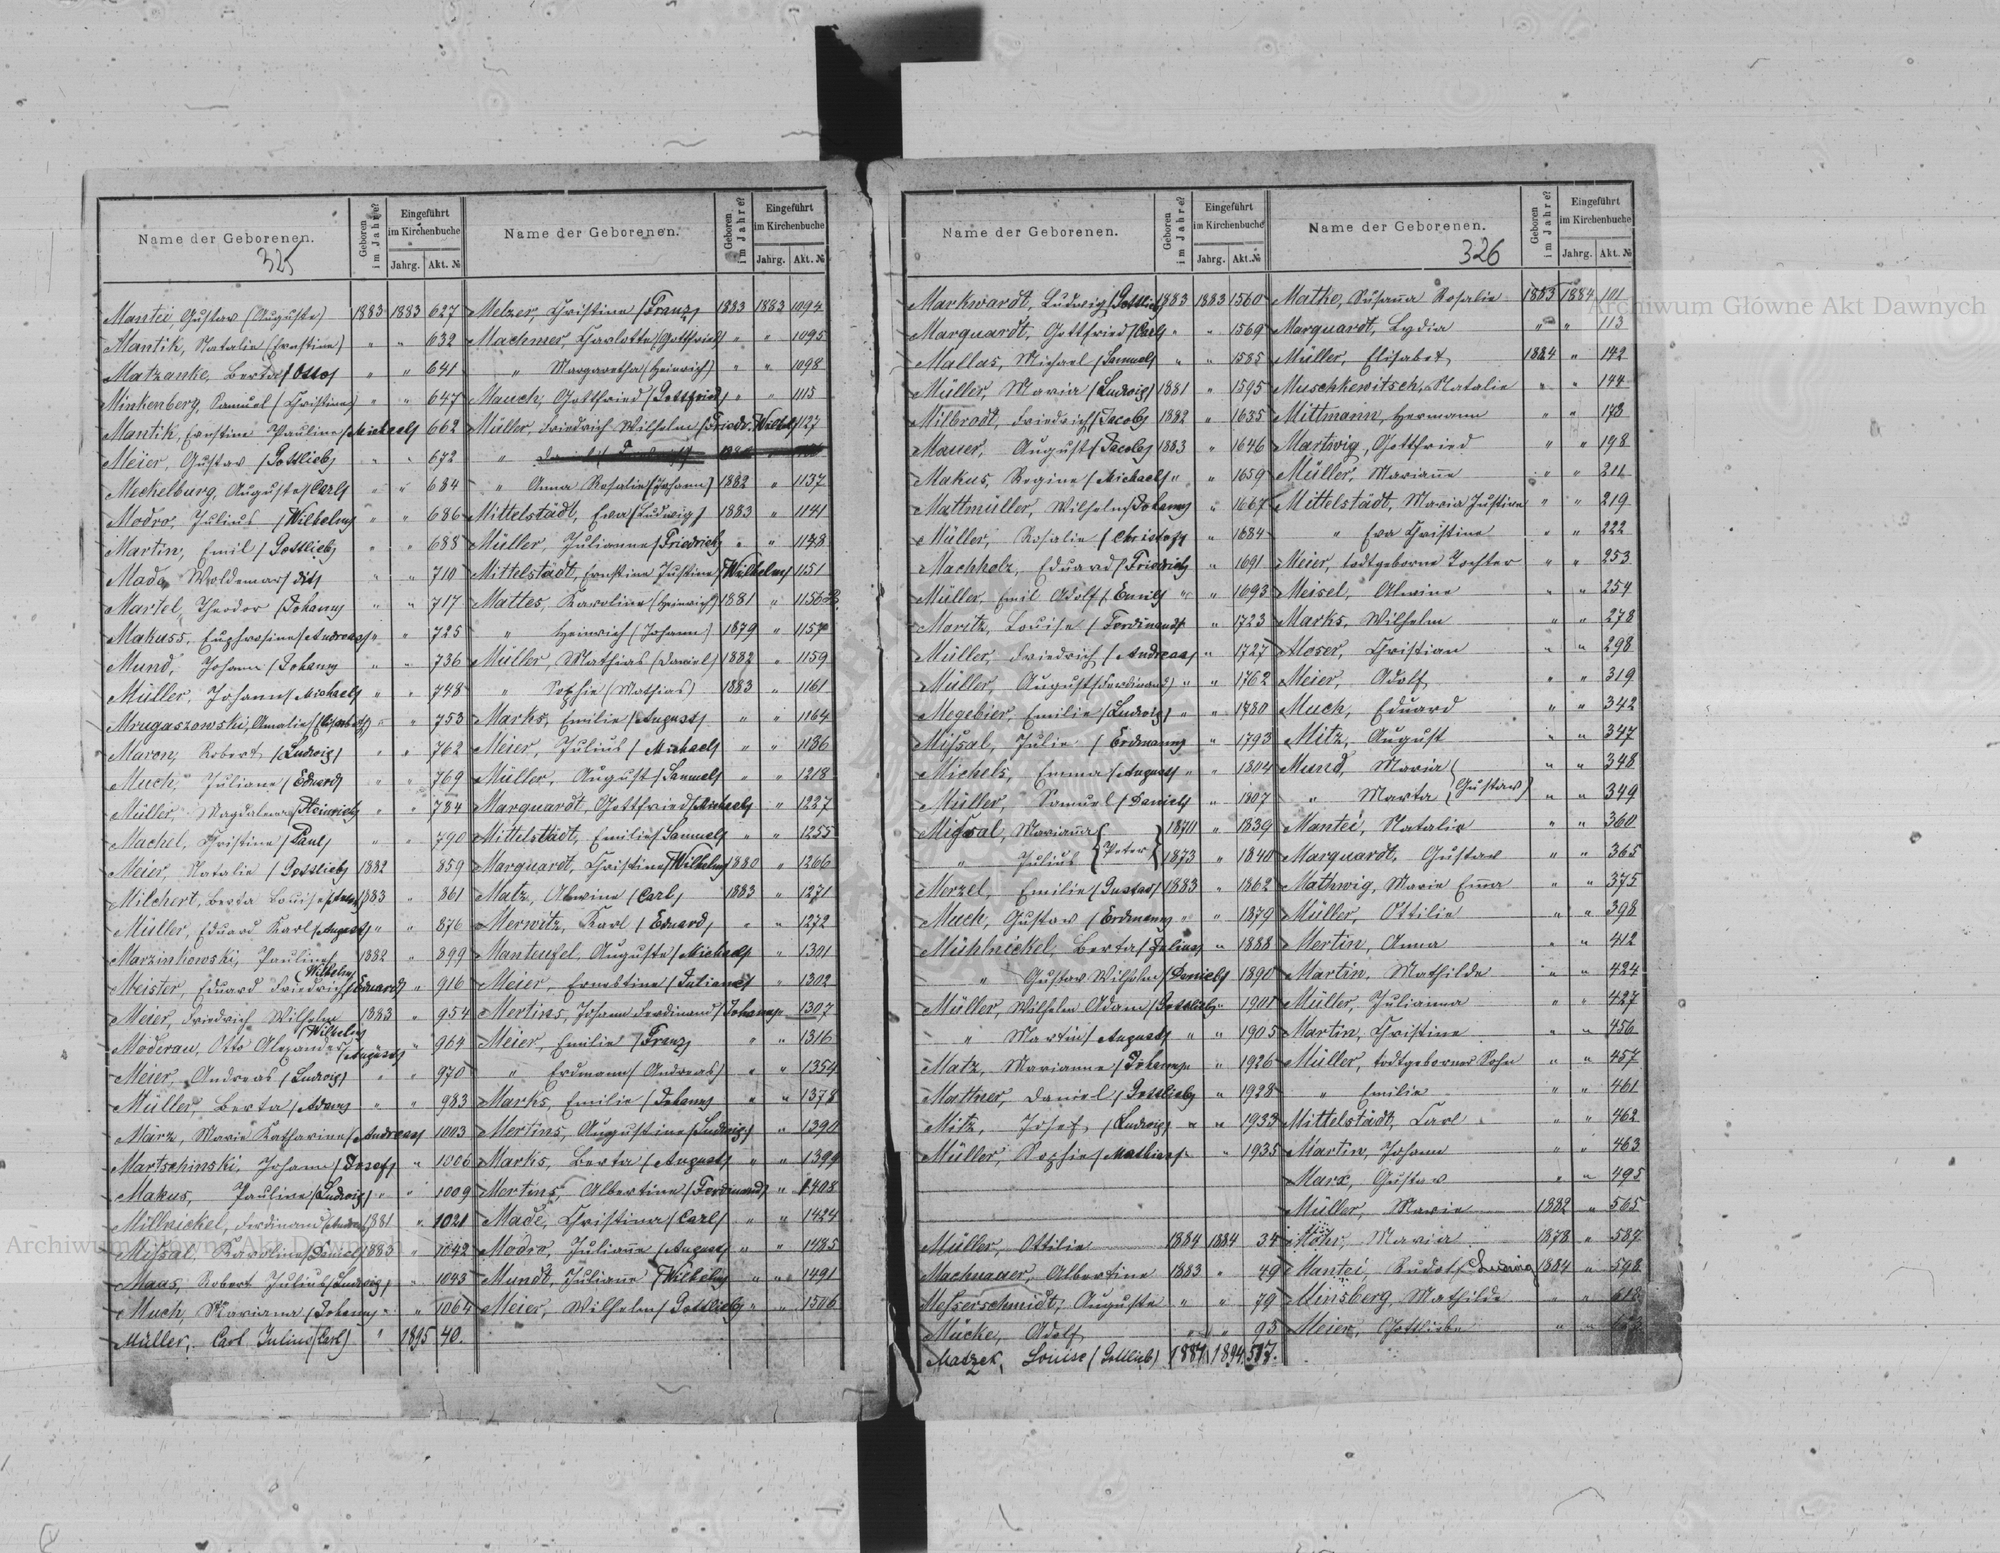 Name der Geborenen.
325
Geboren im Jahre?
Eingeführt im Kirchenbuche
Jahrg. Akt. №
Mantei, Gustav (Auguste) 1883 1883 627
Mantik, Natalie (Ernstine) " " 632
Matzanke, Berta (Otto) " " 641
Minkenberg, Samuel (Christine) " " 647
Mantik, Ernstine Pauline (Michael) 662
Meier, Gustav (Gottlieb) " " 672
Meckelburg, Auguste (Carl) " " 684
Modro, Julius (Wilhelm) " " 686
Martin, Emil (Gottlieb) " " 688
Made, Woldemar (dit) " " 710
Martel, Theodor (Johann) " " 717
Makuss, Euphrosine (Andreas) " " 725
Mund, Johann (Johann) " " 736
Müller, Johann (Michael) " " 748
Mrugaszowski, Amalie (Elisabeth) " " 753
Maron, Robert (Ludwig) " " 762
Much, Juliane (Eduard) " " 769
Müller, Magdalena (Heinrich) " " 784
Machel, Christine (Paul) " " 790
Meier, Natalie (Gottlieb) 1882 859
Milchert, Berta Louise 1883 " 861
Müller, Eduard Karl (August) " " 876
Marzinkowski, Pauline (Wilhelm) 1882 " 899
Meister, Eduard Friedrich (Eduard) " 916
Meier, Friedrich Wilhelm (Wilhelm) 1883 " 954
Moderau, Otto Alexander (August) " 964
Meier, Andreas (Ludwig) " " 970
Müller, Berta (Adam) " " 983
März, Marie Katharine (Andreas) 1003
Martschinski, Johann (Josef) " 1006
Makus, Pauline (Ludwig) " " 1009
Millnickel, Ferdinand 1881 " 1021
Missal, Karoline (Daniel) 1883 " 1042
Maas, Robert Julius (Ludwig) " 1043
Much, Mariana (Johann) " " 1064
Müller, Carl Julius (Carl) " 1895 40.
Name der Geborenen.
Geboren im Jahre?
Eingeführt im Kirchenbuche
Jahrg. Akt. №
Melzer, Christine (Franz) 1883 1883 1094
Machmer, Charlotte (Gottfried) " " 1095
" Margaretha (Heinrich) " " 1098
Mauch, Gottfried (Gottfried) " " 1115
Müller, Friedrich Wilhelm (Friedr. Wilhelm) 1127
" Anna Rosalie (Johann) 1882 " 1137
Mittelstädt, Eva (Ludwig) 1883 " 1141
Müller, Julianne (Friedrich) " " 1148
Mittelstädt, Ernstine Justine (Wilhelm) 1151
Mattes, Karoline (Heinrich) 1881 " 1156
" Heinrich (Johann) 1879 " 1157
Müller, Mathias (Daniel) 1882 " 1159
" Sophie (Mathias) 1883 " 1161
Marks, Emilie (August) " " 1164
Meier, Julius (Michael) " " 1186
Müller, August (Samuel) " " 1218
Marquardt, Gottfried (Michael) " 1227
Mittelstädt, Emilie (Samuel) " " 1255
Marquardt, Christine (Wilhelm) 1880 " 1266
Matz, Alwine (Carl) 1883 " 1271
Merwitz, Karl (Eduard) " " 1272
Manteufel, Auguste (Michael) " 1301
Meier, Ernestine (Juliane) " 1302
Mertins, Johann Ferdinand (Johann) 1307
Meier, Emilie (Franz) " " 1316
" Erdmann (Andreas) " " 1354
Marks, Emilie (Johann) " " 1378
Mertins, Augustine (Ludwig) " 1390
Marks, Berta (August) " " 1399
Mertins, Albertine (Ferdinand) " 1408
Made, Christina (Carl) " " 1424
Modro, Julianne (August) " " 1485
Mundt, Juliane (Wilhelm) " " 1491
Meier, Wilhelm (Gottlieb) " " 1506
Name der Geborenen.
Geboren im Jahre?
Eingeführt im Kirchenbuche
Jahrg. Akt. №
Markwardt, Ludwig (Gottlieb) 1883 1883 1560
Marquardt, Gottfried (Carl) " " 1569
Mallas, Michael (Samuel) " " 1585
Müller, Maria (Ludwig) 1881 " 1595
Milbrodt, Friedrich (Jacob) 1882 " 1635
Mauer, August (Jacob) 1883 " 1646
Makus, Regine (Michael) " " 1659
Mattmüller, Wilhelm (Johann) " 1667
Müller, Rosalie (Christof) " 1684
Machholz, Eduard (Friedrich) " 1691
Müller, Emil Adolf (Emil) " " 1693
Moritz, Louise (Ferdinand) " 1723
Müller, Friedrich (Andreas) " " 1727
Müller, August (Ferdinand) " " 1762
Megebier, Emilie (Ludwig) " " 1780
Missal, Julie (Erdmann) " 1793
Michels, Emma (August) " " 1804
Müller, Samuel (Daniel) " 1807
Missal, Marianna (Peter) 1870 " 1839
" Julius 1873 " 1840
Merzel, Emilie (Gustav) 1883 " 1862
Much, Gustav (Erdmann) " " 1879
Mühlnickel, Berta (Julius) " 1888
" Gustav Wilhelm (Daniel) 1890
Müller, Wilhelm Adam (Gottlieb) " 1901
" Martin (August) " " 1905
Matz, Marianne (Johann) " 1926
Mattner, Daniel (Gottlieb) " 1928
Mitz, Josef (Ludwig) " " 1933
Müller, Sophie (Mathias) " 1935
Müller, Ottilie 1884 1884 34
Machnauer, Albertine 1883 " 49
Messerschmidt, Auguste " " 79
Mücke, Adolf " " 95
Matzek, Louise (Gottlieb) 1884 1894 517.
Name der Geborenen.
326
Geboren im Jahre?
Eingeführt im Kirchenbuche
Jahrg. Akt. №
Mathe, Susanna Rosalie 1883 1884 101
Marquardt, Lydia " " 113
Müller, Elisabet 1884 " 142
Muschkewitsch, Natalie " " 144
Mittmann, Hermann " " 178
Martwig, Gottfried " " 198
Müller, Marianne " " 211
Mittelstädt, Maria Justine " " 219
" Eva Christine " " 222
Meier, todtgeborne Tochter " " 253
Meisel, Alwine " " 254
Marks, Wilhelm " " 278
Moser, Christian " " 298
Meier, Adolf " " 319
Much, Eduard " " 342
Mitz, August " " 347
Mund, Maria " " 348
" Marta (Gustav) " " 349
Mantei, Natalie " " 360
Marquardt, Gustav " " 365
Mathwig, Marie Emma " " 375
Müller, Ottilie " " 398
Mertin, Anna " " 412
Martin, Mathilde " " 424
Müller, Julianna " " 427
Martin, Christine " " 456
Müller, todtgeborner Sohn " " 457
" Emilie " " 461
Mittelstädt, Carl " " 462
Martin, Johann " " 463
Marx, Gustav " " 495
Müller, Marie 1882 " 565
Möhr, Maria 1878 " 587
Mantei, Rudolf (Ludwig) 1884 " 598
Minsberg, Mathilde " "
Meier, Gottliebe " "
Archiwum Główne Akt Dawnych
Archiwum Główne Akt Dawnych